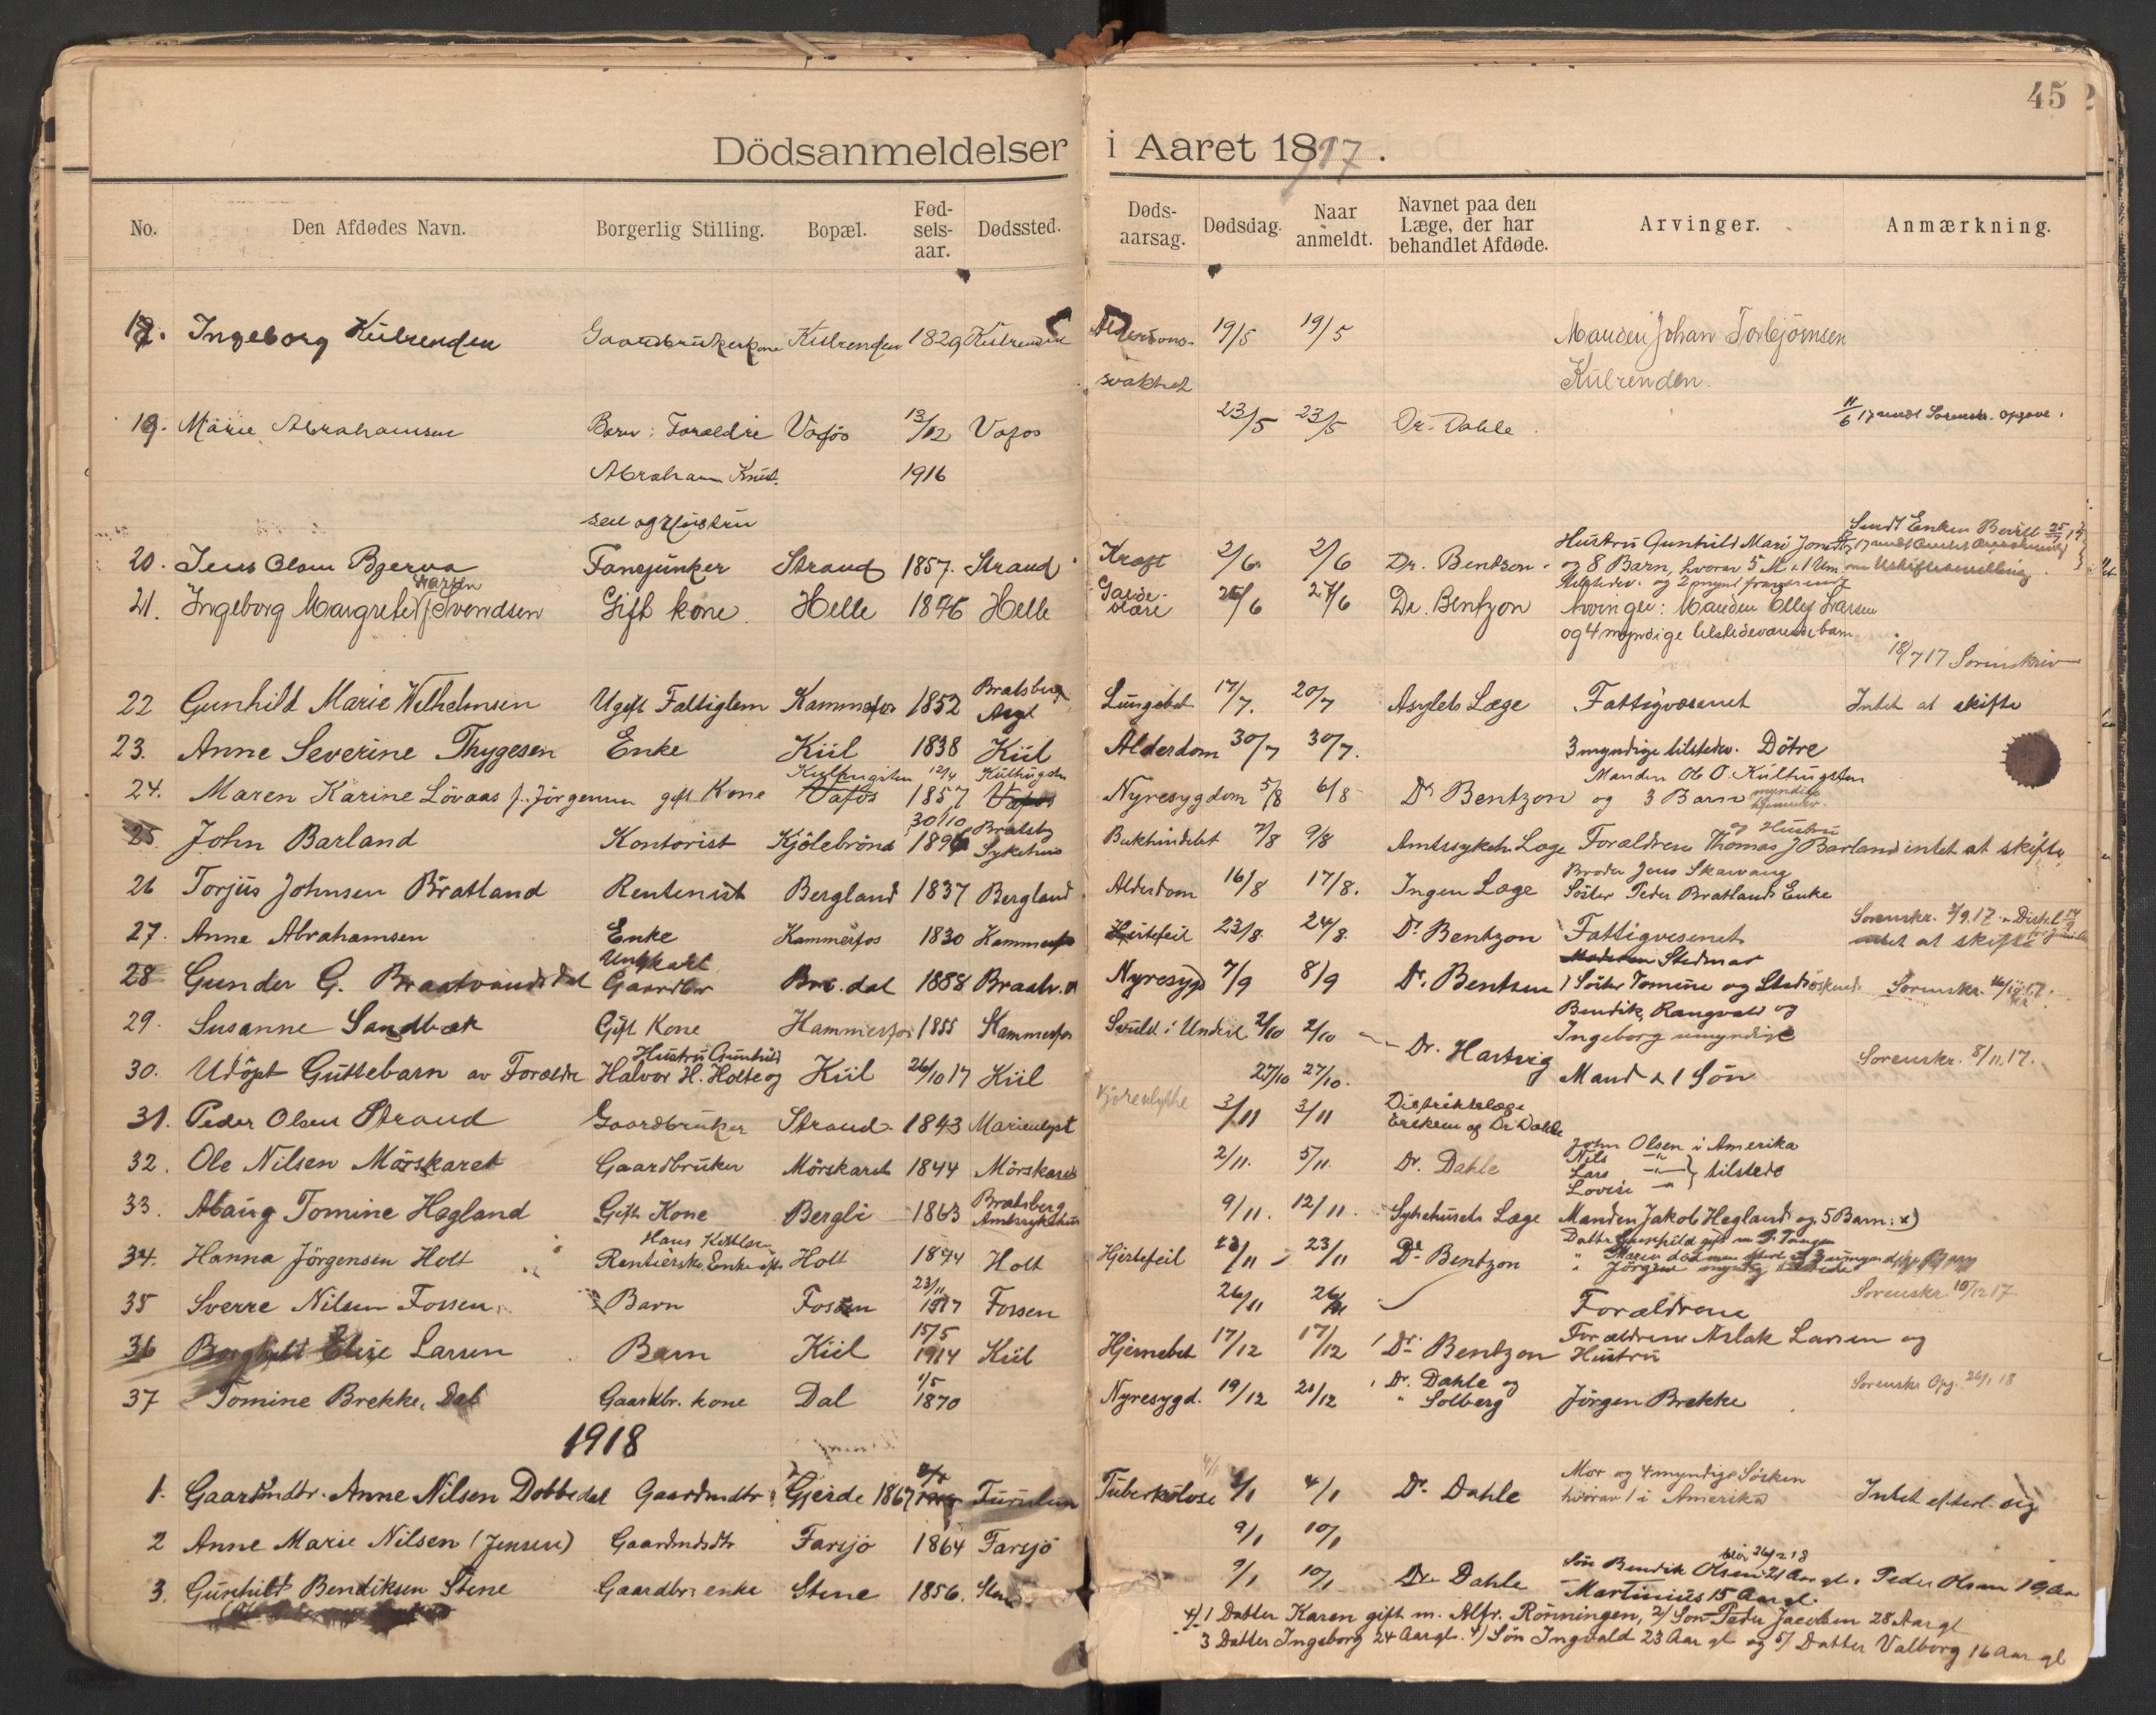 45
Dödsanmeldelser i Aaret 1917.
No. Den Afdødes Navn. Borgerlig Stilling. Bopæl. Fødselsaar. Dødssted. Dødsaarsag. Dødsdag. Naar anmeldt. Navnet paa den Læge, der har behandlet Afdøde. Arvinger. Anmærkning.
18. Ingeborg Kulrenden Gaardbrukerkone Kulrenden 1829 Kulrenden Alderdoms- 19/5 19/5 Manden Johan Torbjörnsen
svakhet Kulrenden.
19. Marie Abrahamsen Barn: Foraldre Vafos 13/12 Vafos 23/5 23/5 Dr. Dahle 11/6 17 sendt Sorenskr. opgave.
Abraham Knut- 1916
sen og Hustru
Sendt Enken Bevill 25/7 17
Hustru Gunhild Mari
20. Jens Olsen Bjerva Fansjunker Strand 1857. Strand Kraft 2/6 2/6 Dr. Bentzon og 8 Barn, hvorav 5 M.
Larsen
21. Ingeborg Margrethe f. Svendsen Gift kone. Helle 1846 Helle 26/6 27/6 Dr. Bentzon Arvinger: Manden Ellef Larsen
og 4 myndige tilstedeværende barn
18/7 17 Sorenskriv
22 Gunhild Marie Wilhelmsen Ugift Fattiglem Kammerfos 1852 Bratsberg Asyl Lungebet 17/7. 20/7 Asylets Læge Fattigvæsenet Intet at skifte
23. Anne Severine Thygesen Enke Kiil 1838 Kiil Alderdom 30/7 30/7. 3 myndige tilstedev. Døtre
Manden Ole O. Kulhugsten
24. Maren Karine Lövaas f. Jörgensen gift Kone Vafos Kulhugsten 12/4 1857 Vafos Kulhugsten Nyresygdom 5/8 6/8 Dr Bentzon og 3 Barn myndige hjemmev.
og Hustru
25 John Barland Kontorist Kjölebrönd 30/10 1896 Bratsbg Sykehus Bukhindebet 7/8 9/8 Amtssykeh. Læge Forældrene Thomas J Barland intet at skifte
Broder Jens Skarvang
26 Torjus Johnsen Bratland Rentenist Bergland 1837 Bergland Alderdom 16/8 17/8. Ingen Læge Söster Peder Bratlands Enke
27. Anne Abrahamsen Enke Kammerfos 1830 Kammerfos Hjertefeil 23/8. 24/8. Dr Bentzon Fattigvesenet Sorenskr. 3/9.17 intet at skifte
Ungkarl Stedmor
28 Gunder G. Braatvandsdal Gaardbr Brv. dal 1888 Braatv. Nyresygd 7/9 8/9 Dr. Bentsen 1 Söster Tomine og Stedsöskend. Sorenskr.
Bendik, Rangvald og
29. Susanne Sandbæk Gift Kone Kammerfos 1855 Kammerfos Svulst i Underl 2/10 2/10 Dr. Hartvig Ingeborg umyndige
Hustru Gunhild
30. Udöpt Guttebarn av Forældre Halvor H. Holte og Kiil 26/10 17 Kiil 27/10 27/10. Mand & 1 Sön Sorenskr. 8/11.17.
31. Peder Olsen Strand Gaardbruker Strand 1843 Marienlyst 3/11 3/11 Distriktslæge Eriksen og Dr Dahle
32. Ole Nilsen Mörskaret Gaardbruker Mörskaret 1844 Mörskaret 2/11. 5/11. Dr. Dahle John Olsen i Amerika
Nils
Lars
Lovise } tilstede
33. Abaug Tomine Hegland Gift Kone Bergli 1863 Bratsberg Amtssykehus 9/11. 12/11. Sykehusets Læge Manden Jakob Hegland og 5 Barn: x)
Datter Gunhild gift m P. Tangen
34. Hanna Jörgensen Holt Rentierske, Enke eft. Holt 1844 Holt Hjertefeil 23/11 23/11 Dr. Bentzon
" Jörgine myndig tilstede
35 Sverre Nilsen Fossen Barn Fossen 23/11 1917 Fossen 26/11 26/11 Forældrene Sorenskr 10/12 17
36 Borghild Elise Larsen Barn Kiil 15/5 1914 Kiil Hjernebet 17/12 17/12 Dr. Bentzon Forældrene Aslak Larsen og Hustru
37 Tomine Brekke, Dal Gaardbr. kone Dal 1/5 1870 Nyresygd. 19/12 21/12 Dr. Dahle og " Solberg Jörgen Brekke Sorenskr Opg. 26/1 18
1918
1. Gaardmdtr. Anne Nilsen Dobbedal Gaardmdtr. Gjerde 1867 Furulun Tuberkulose 4/1 4/1 Dr. Dahle Mor og 4 myndige Sösken hvorav 1 i Amerika Intet efterl. sig
2 Anne Marie Nilsen (Jensen) Gaardmdsdtr Farsjö 1864 Farsjö 9/1 10/1
3. Gunhild Bendiksen Stene Gaardbr. enke Stene 1856. 9/1 10/1 Dr. Dahle Sön Bendik Olsen 21 Aar gl. blir 26/2 18 Peder Olsen 19 Aar
Martinius 15 Aar gl.
x) 1 Datter Karen gift m. Alfr. Rönningen, 2) Sön Peder Jacobsen 28 Aar gl
3 Datter Ingeborg 24 Aar gl. 4) Sön Ingvald 23 Aar gl og 5) Datter Valborg 16 Aar gl